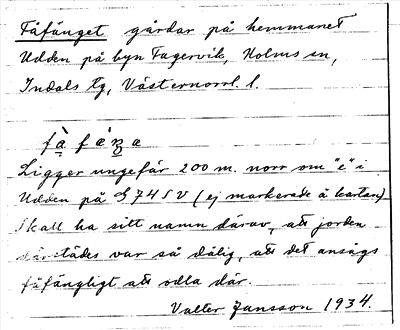 Fåfänget gårdar på hemmanet
Udden på byn Fagervik, Holms sn,
Indals tg, Västernorrl. l.
fà̱ fæŋa
Ligger ungefär 200 m. norr om "e" i
Udden på G 74 SV (ej markerade å kartan)
Skall ha sitt namn därav, att jorden
därstädes var så dålig, att det ansågs
fåfängligt att odla där.
Valter Jansson 1934.